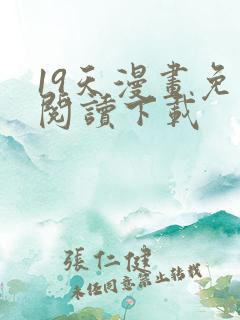 19天漫畫免
閱讀下載
張仁健
未經同意禁止轉載